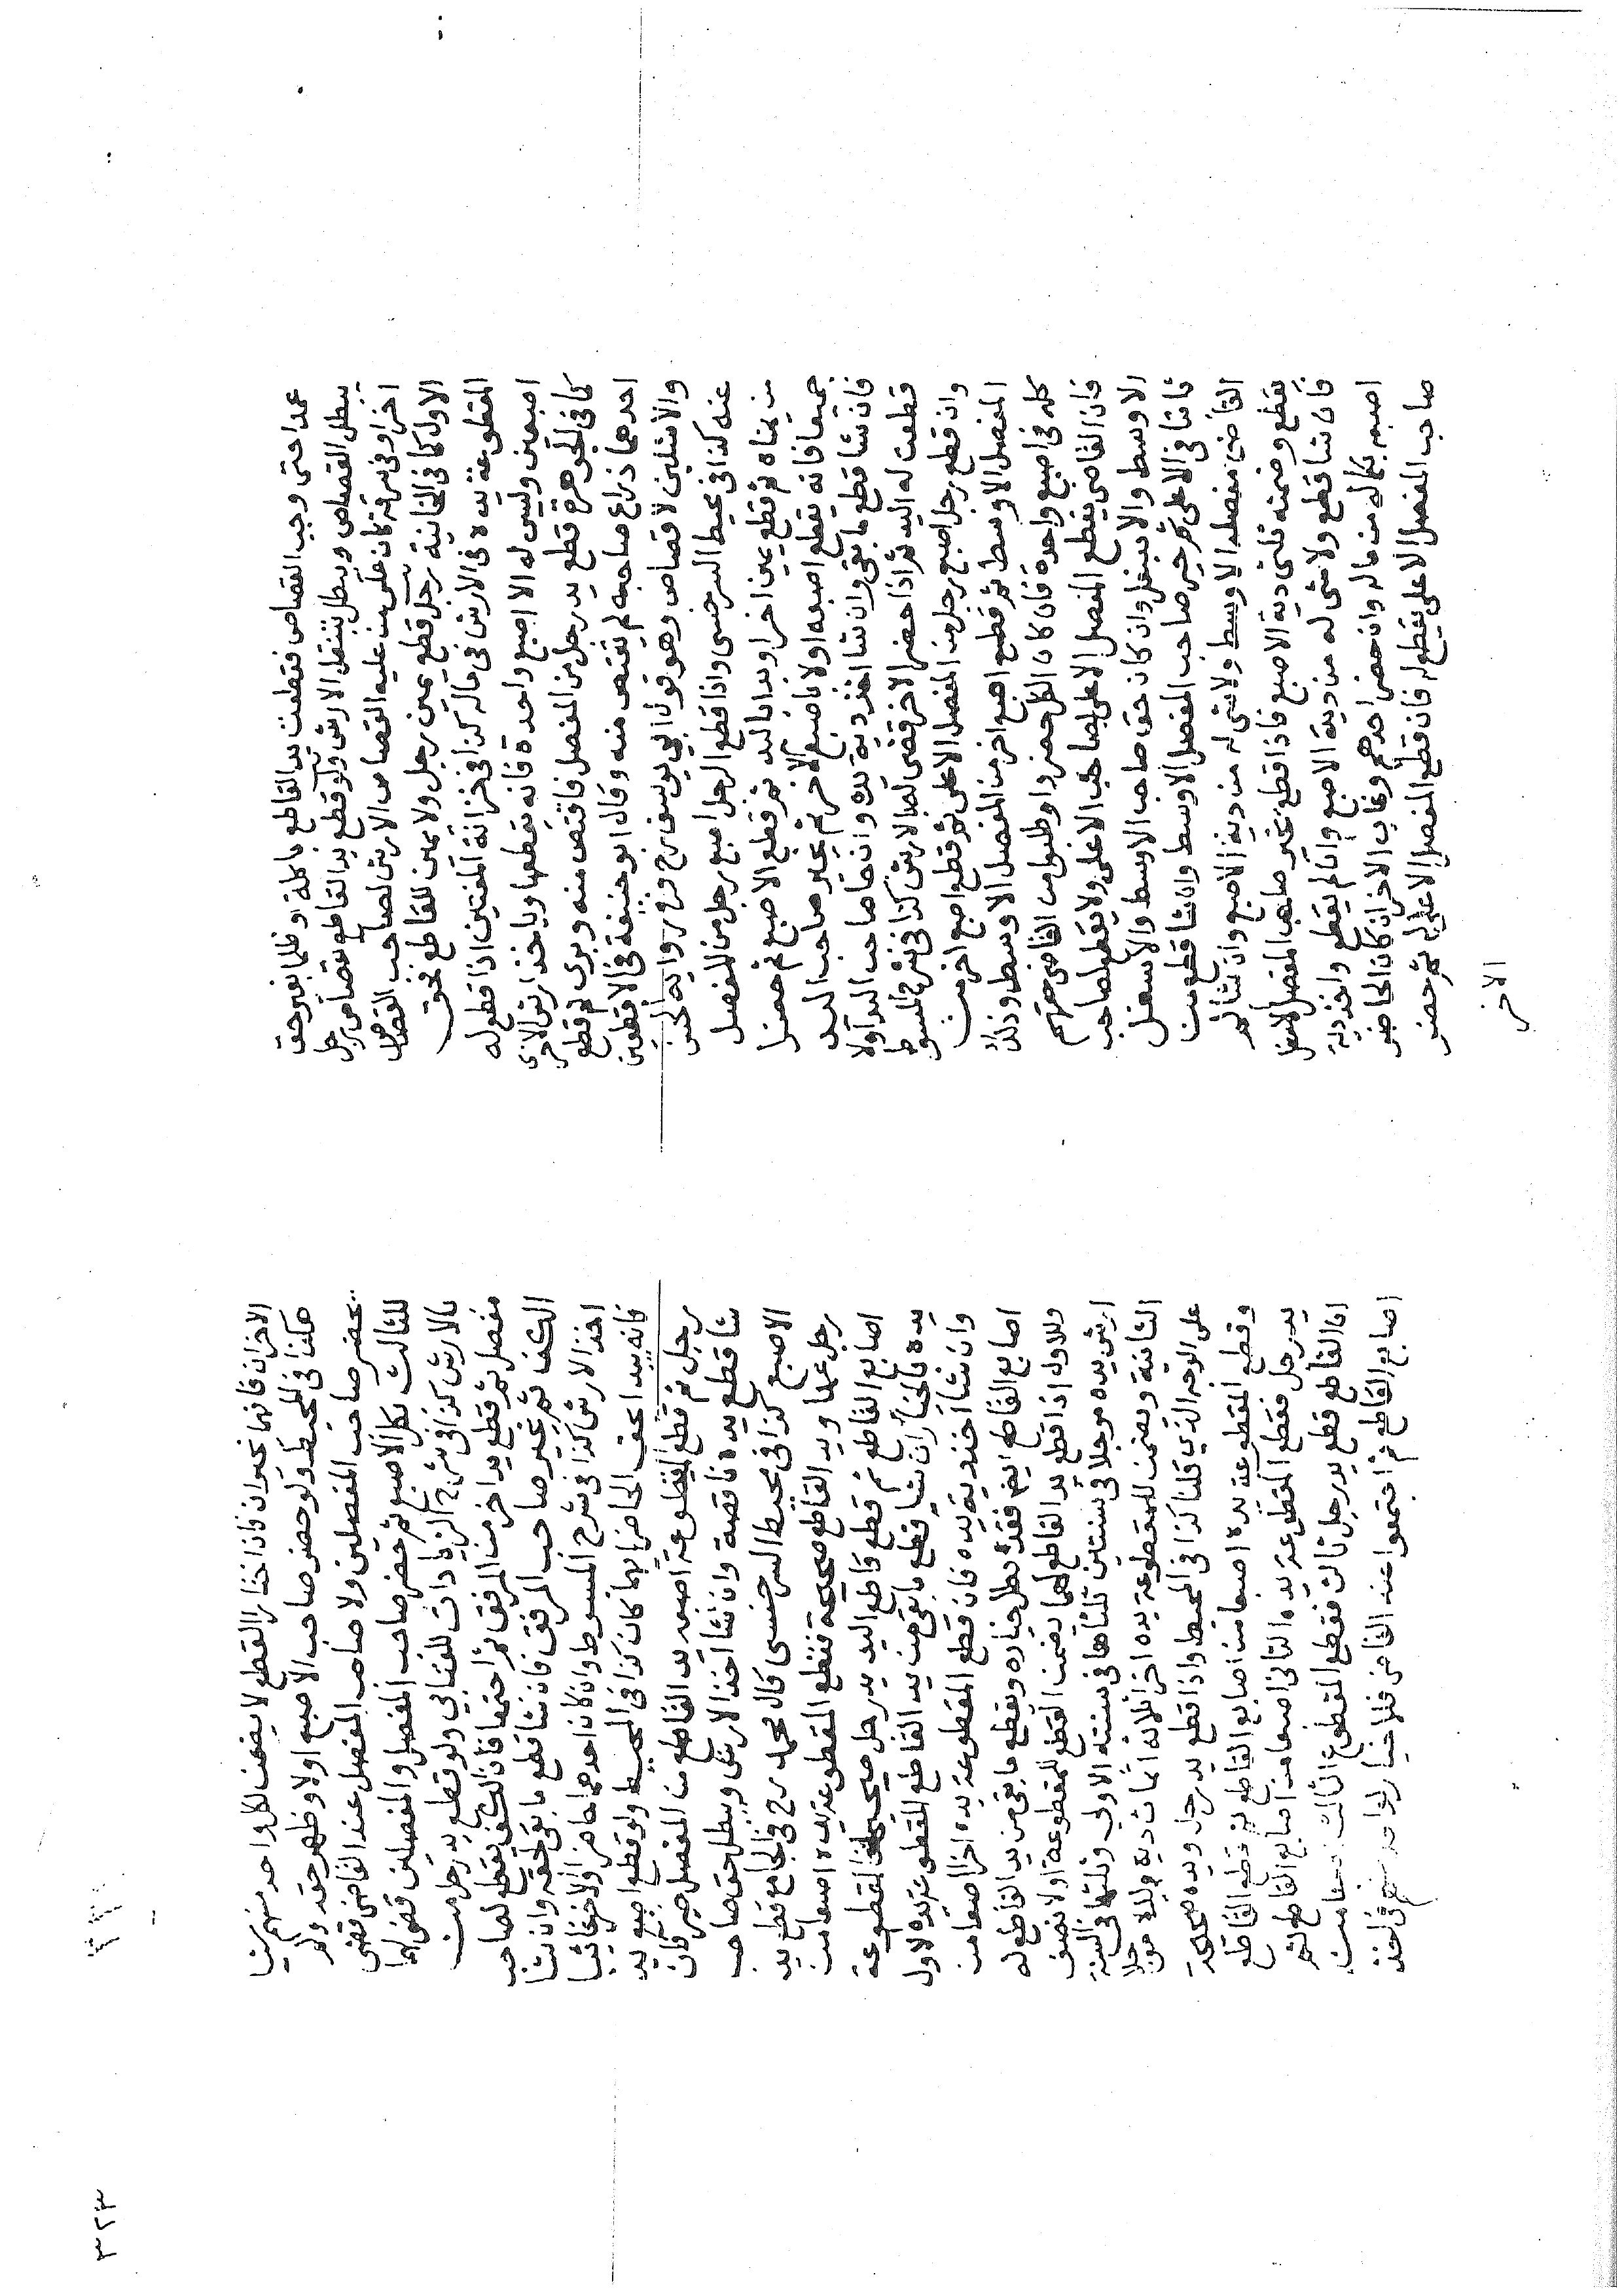 عمدا حتى وجب القصاص فقطعت يد القاطع باكلة او ظلما بغير حق
يبطل القصاص ويبطل بنقل الارش ولو قطع يد القاطع بقصاص رجل
اخر او في سرقة كان على من عليه القصاص الارش لصاحب القصاص
الاول كما في الخانية رجل قطع يمين رجل ولا يمين للقاطع بحق
المقطوعة يده في الارش في ماله كذا في خزانة المفتين اذا قطع له
اصبعين وليس له الا اصبع واحدة فانه يقطعها وياخذ ارش الاخرى
كما في الجوهرة قطع يد رجل من المفصل فاقتص منه وبرئ ثم قطع
احدهما ذراع صاحبه لم يقتص منه وقال ابو حنيفة في الاقطعين
والاشلين لا قصاص وهو قول ابي يوسف رح في رواية الحسن
عنه كذا في محيط السرخسي واذا قطع الرجل اصبع رجل من المفصل
من يمناه ثم قطع يمين اخر او بدا باليد ثم قطع الاصبع ثم حضرا
جميعا فانه يقطع اصبعه اولا باصبع الاخر ثم يخير صاحب اليد
فان شا قطع ما بقي وان شا اخذ دية يده وان جا صاحب اليد اولا
قطعت له اليد ثم اذا حضر الاخر قضى له بالارش كذا في شرح المبسوط
وان قطع رجل اصبع رجل من المفصل الاعلى ثم قطع اصبع اخر من
المفصل الاوسط ثم قطع اصبع اخر من المفصل الاوسط وذلك
كله في اصبع واحدة فان كان الكل حضروا وطلبوا من القاضي حقهم
فان القاضي يقطع المفصل الاعلى لصاحب الاعلى ولا يقطع لصاحب
الاوسط والاسفل وان كان حق صاحب الاوسط والاسفل
ثابتا في الاعلى ثم يخير صاحب المفصل الاوسط وان شا قطع من
القاضي مفصله الاوسط ولا شى له من دية الاصبع وان شا لم
يقطع وضمنه ثلثى دية الاصبع فاذا قطع يخير صاحب المفصل الاسفل
فان شا قطع ولا شى له من دية الاصبع وان لم يقطع واخذ دية
اصبعه بكاله من ماله وان حضر احدهم وغاب الاخر ان كان الحاضر
صاحب المفصل الاعلى يقطع له فان قطع المفصل الاعلى له ثم حضر
الاخر
٣٢٣
الاخران فانهما يخيران فاذا اختارا القطع لا يضمن لكل واحد منهم شيئا
هكذا في المحيط ولو حضر صاحب الاصبع اولا وظهر حقه ولم
يحضر صاحب المفصلين ولا صاحب المفصل عند القاضي قضى
للثالث بكل الاصبع ثم حضر صاحب المفصل والمفصلين قضى لهما
بالارش كذا في شرح الزيادات للعتابي ولو قطع يد رجل من
مفصل ثم قطع يد اخر من المرفق ثم اجتمعا فان الكف يقطع لصاحب
الكف ثم يخير صاحب المرفق فان شا قطع ما بقي لحقه وان شا
اخذ الارش كذا في شرح المبسوط وان كان احدهما حاضرا والاخر غائبا
فانه يبدا بحق الحاضر ايهما كان كذا في المحيط ولو قطع اصبع يد
رجل ثم قطع المقطوعة اصبعه يد القاطع من المفصل خير فان
شا قطع يده ناقصة وان شا اخذ الارش ويبطل حق صاحب
الاصبع كذا في محيط السرخسي قال محمد رح في الجامع قطع يد
رجل عمدا ويد القاطع صحيحة فقطع المقطوعة يده اصبعا من
اصابع القاطع ثم قطع قاطع اليد يد رجل صحيح فالمقطوعة
يده بالخيار ان شا قطع ما بقي من يد القاطع المقطوعة يده الاول
وان شا اخذ دية يده فان قطع المقطوعة يده اخرا اصبعا من
اصابع القاطع ايضا فقد بطل خياره ويقطع ما بقي من يد القاطع له
وللاول اذا قطع يد القاطع لهما يضمن القطع للمقطوعة اولا نصف
ارش يده موجلا في سنتين ثلثاها في سنته الاولى وثلثها في السنة
الثانية ويضمن للمقطوعة يده اخرا ثلاثة اثمان دية يده موجلا
على الوجه الذي قلنا كذا في المحيط واذا قطع يد رجل ويده صحيحة
وقطع المقطوعة يده اصبعا من اصابع القاطع ثم قطع القاطع
يد رجل فقطع المقطوعة يده الثاني اصبعا من اصابع القاطع ثم
ان القاطع قطع يد رجل ثالث فقطع المقطوع الثالث اصبعا من
اصابع القاطع ثم اجتمعوا عند القاضي فلا خيار لواحد منهم في اخذ